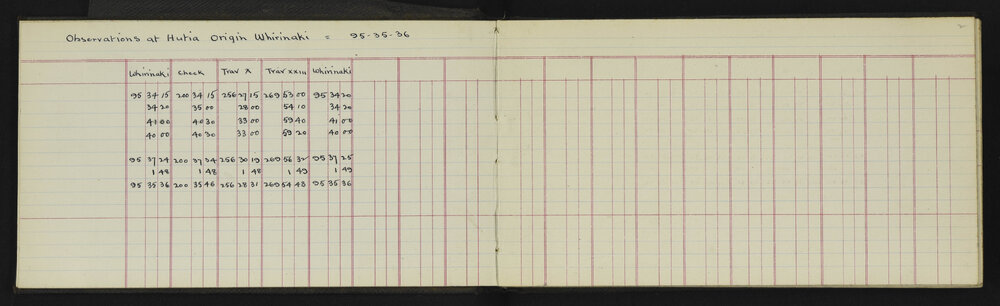 Observations at Hutia Origin Whirinaki = 95-35-36
2
Whirinaki Check Trav X Trav XXIII Whirinaki
95 34 15 200 34 15 256 27 15 269 53 00 95 34 20
34 20 35 00 28 00 54 10 34 20
41 00 40 30 33 00 59 40 41 00
40 00 40 30 33 00 59 20 40 00
95 37 24 200 37 34 256 30 19 269 56 32 95 37 25
1 48 1 48 1 48 1 49 1 49
95 35 36 200 35 46 256 28 31 269 54 43 95 35 36